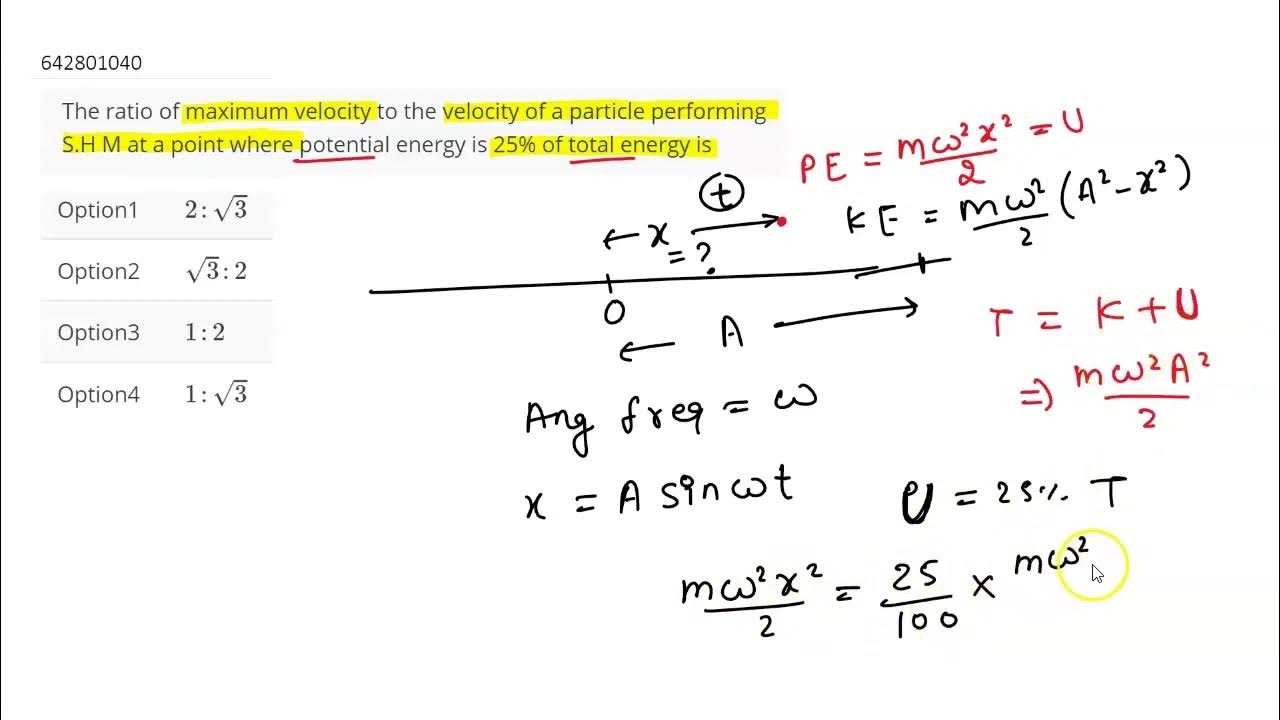 642801040
The ratio of maximum velocity to the velocity of a particle performing
S.H M at a point where potential energy is 25% of total energy is
Option1 2 : √3
Option2 √3 : 2
Option3 1 : 2
Option4 1 : √3
PE = mω²x²/2 = U
KE = mω²/2 (A² - x²)
+
← x →
= ?
O
← A →
T = K + U
⇒ mω²A²/2
Ang freq = ω
x = A sin ωt
U = 25% T
mω²x²/2 = 25/100 × mω²